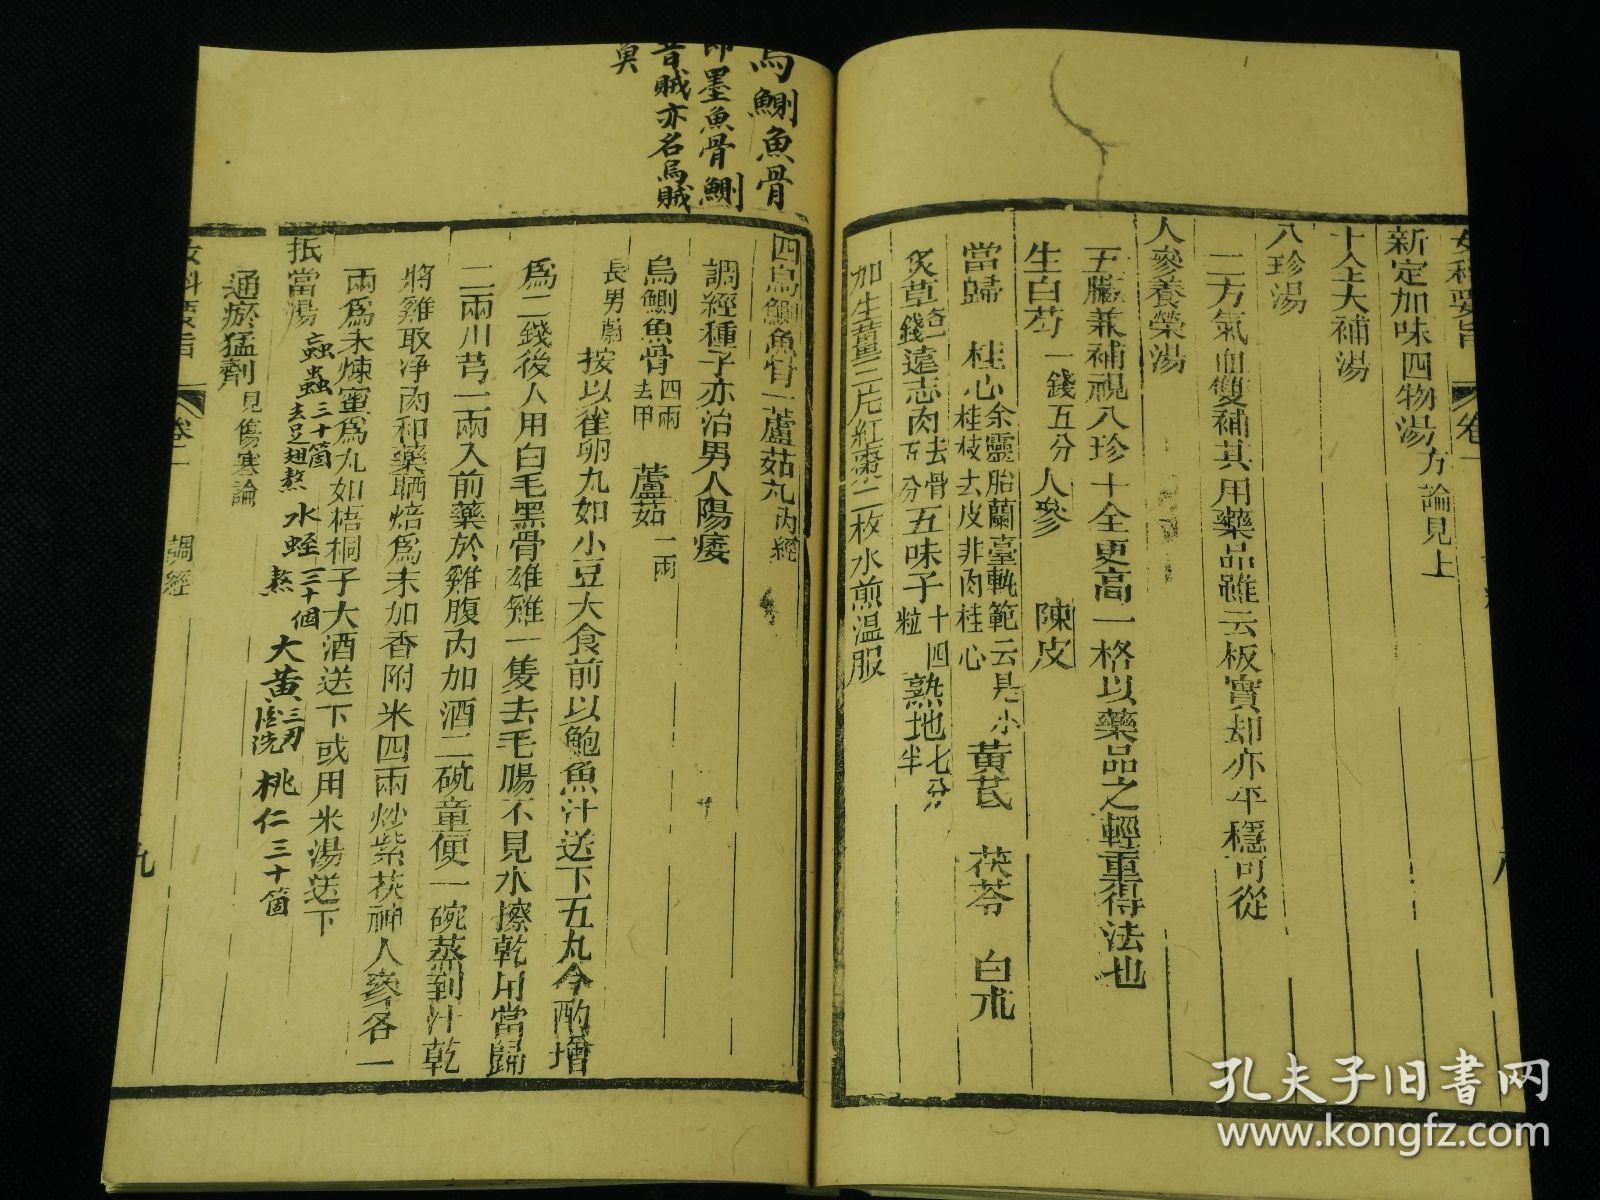 女科要旨 卷一
新定加味四物湯 方論見上
十全大補湯
八珍湯
二方氣血雙補其用藥品雖云板實却亦平穩可從
人參養榮湯
五臟兼補視八珍十全更高一格以藥品之輕重得法也
生白芍 一錢五分 人參 陳皮
當歸 桂心 余靈胎蘭臺軌範云是小桂枝去皮非肉桂心 黃芪 茯苓 白朮
炙草 各一錢 遠志肉 去骨五分 五味子 十四粒 熟地 七分半
加生薑三片紅棗二枚水煎溫服
烏鰂魚骨
即墨魚骨鰂
音賊亦名烏賊
魚
四烏鰂魚骨一蘆茹丸 內經
調經種子亦治男人陽痿
烏鰂魚骨 四兩去甲 蘆茹 一兩
長男蔚 按以雀卵丸如小豆大食前以鮑魚汁送下五丸今酌增
為二錢後人用白毛黑骨雄雞一隻去毛腸不見水擦乾用當歸
二兩川芎一兩入前藥於雞腹內加酒二碗童便一碗蒸到汁乾
將雞取淨肉和藥晒焙為末加香附米四兩炒紫茯神人參各一
兩為末煉蜜為丸如梧桐子大酒送下或用米湯送下
抵當湯 蝱蟲 三十箇去足翅熬 水蛭 三十個熬 大黃 三兩酒洗 桃仁三十箇
通瘀猛劑 見傷寒論
女科要旨 卷一 調經 九
孔夫子旧书网
www.kongfz.com